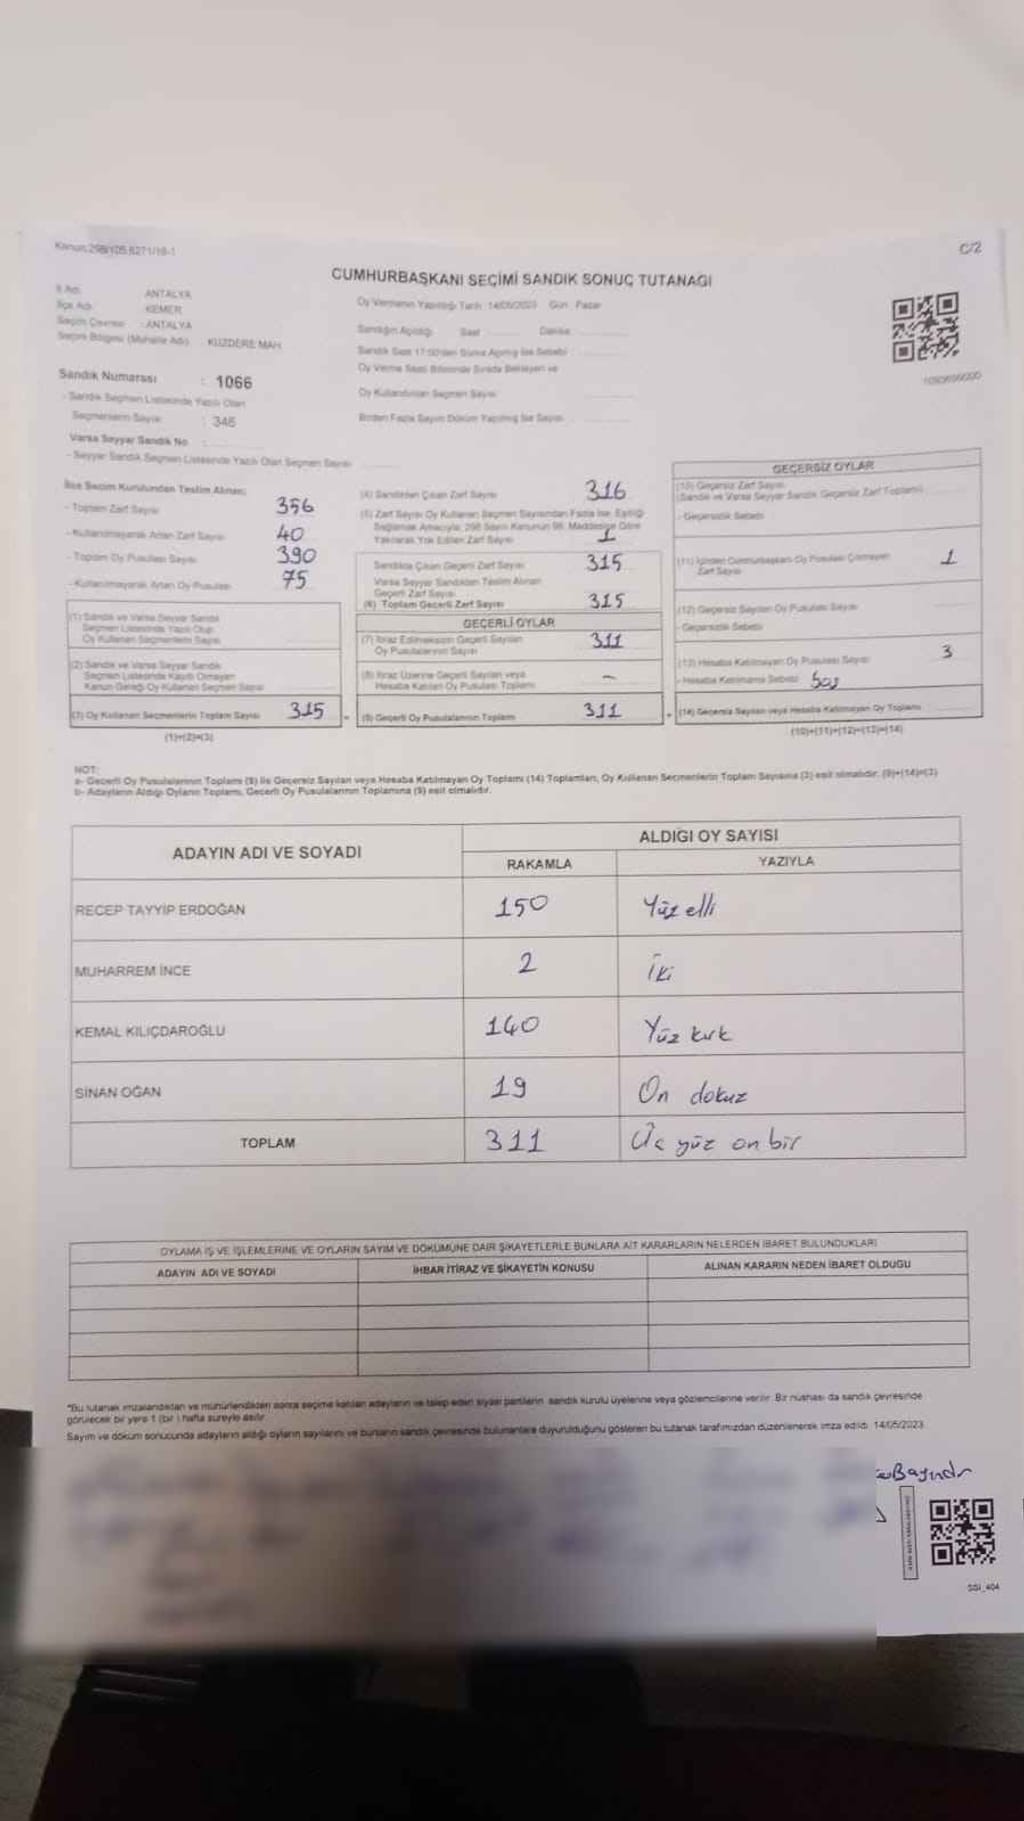 Kanun:298/105,6271/18-1
C/2
CUMHURBAŞKANI SEÇİMİ SANDIK SONUÇ TUTANAĞI
İl Adı ANTALYA
İlçe Adı KEMER
Seçim Çevresi : ANTALYA
Seçim Bölgesi (Muhalle Adı) : KUZDERE MAH.
Sandık Numarası : 1066
- Sandık Seçmen Listesinde Yazılı Olan
Seçmenlerin Sayısı : 346
Varsa Seyyar Sandık No :
- Seyyar Sandık Seçmen Listesinde Yazılı Olan Seçmen Sayısı
Oy Vermenin Yapıldığı Tarih: 14/05/2023 Gün: Pazar
Sandığın Açıldığı Saat Dakika
Sandık Saat 17:00'den Sonra Açılmış İse Sebebi :
Oy Verme Saati Bitiminde Sırada Bekleyen ve
Oy Kullandırılan Seçmen Sayısı
Birden Fazla Sayım Döküm Yapılmış İse Sayısı
İlçe Seçim Kurulundan Teslim Alınan;
- Toplam Zarf Sayısı 356
- Kullanılmayarak Artan Zarf Sayısı 40
- Toplam Oy Pusulası Sayısı 390
- Kullanılmayarak Artan Oy Pusulası 75
(1) Sandık ve Varsa Seyyar Sandık
Seçmen Listesinde Yazılı Olup
Oy Kullanan Seçmenlerin Sayısı
(2) Sandık ve Varsa Seyyar Sandık
Seçmen Listesinde Kayıtlı Olmayan
Kanun Gereği Oy Kullanan Seçmen Sayısı
(3) Oy Kullanan Seçmenlerin Toplam Sayısı 315
(1)+(2)=(3)
(4) Sandıktan Çıkan Zarf Sayısı 316
(5) Zarf Sayısı Oy Kullanan Seçmen Sayısından Fazla İse, Eşitliği
Sağlamak Amacıyla; 298 Sayılı Kanunun 98. Maddesine Göre
Yakılarak Yok Edilen Zarf Sayısı 1
Sandıkta Çıkan Geçerli Zarf Sayısı 315
Varsa Seyyar Sandıktan Teslim Alınan
Geçerli Zarf Sayısı
(6) Toplam Geçerli Zarf Sayısı 315
GEÇERLİ OYLAR
(7) İtiraz Edilmeksizin Geçerli Sayılan
Oy Pusulalarının Sayısı 311
(8) İtiraz Üzerine Geçerli Sayılan veya
Hesaba Katılan Oy Pusulası Toplamı -
(9) Geçerli Oy Pusulalarının Toplamı 311
GEÇERSİZ OYLAR
(10) Geçersiz Zarf Sayısı
(Sandık ve Varsa Seyyar Sandık Geçersiz Zarf Toplamı)
- Geçersizlik Sebebi
(11) İçinden Cumhurbaşkanı Oy Pusulası Çıkmayan
Zarf Sayısı 1
(12) Geçersiz Sayılan Oy Pusulası Sayısı
- Geçersizlik Sebebi
(13) Hesaba Katılmayan Oy Pusulası Sayısı 3
- Hesaba Katılmama Sebebi boş
(14) Geçersiz Sayılan veya Hesaba Katılmayan Oy Toplamı
(10)+(11)+(12)+(13)=(14)
NOT:
a- Geçerli Oy Pusulalarının Toplamı (9) ile Geçersiz Sayılan veya Hesaba Katılmayan Oy Toplamı (14) Toplamları, Oy Kullanan Seçmenlerin Toplam Sayısına (3) eşit olmalıdır. (9)+(14)=(3)
b- Adayların Aldığı Oyların Toplamı, Geçerli Oy Pusulalarının Toplamına (9) eşit olmalıdır.
ADAYIN ADI VE SOYADI ALDIĞI OY SAYISI
RAKAMLA YAZIYLA
RECEP TAYYİP ERDOĞAN 150 Yüz elli
MUHARREM İNCE 2 İki
KEMAL KILIÇDAROĞLU 140 Yüz kırk
SİNAN OĞAN 19 On dokuz
TOPLAM 311 Üç yüz on bir
OYLAMA İŞ VE İŞLEMLERİNE VE OYLARIN SAYIM VE DÖKÜMÜNE DAİR ŞİKAYETLERLE BUNLARA AİT KARARLARIN NELERDEN İBARET BULUNDUKLARI
ADAYIN ADI VE SOYADI İHBAR İTİRAZ VE ŞİKAYETİN KONUSU ALINAN KARARIN NEDEN İBARET OLDUĞU
*Bu tutanak imzalandıktan ve mühürlendikten sonra seçime katılan adayların ve talep eden siyasi partilerin sandık kurulu üyelerine veya gözlemcilerine verilir. Bir nüshası da sandık çevresinde
görülecek bir yere 1 (bir) hafta süreyle asılır.
Sayım ve döküm sonucunda adayların aldığı oyların sayılarını ve bunların sandık çevresinde bulunanlara duyurulduğunu gösteren bu tutanak tarafımızdan düzenlenerek imza edildi. 14/05/2023
Bayındır
SGI_404